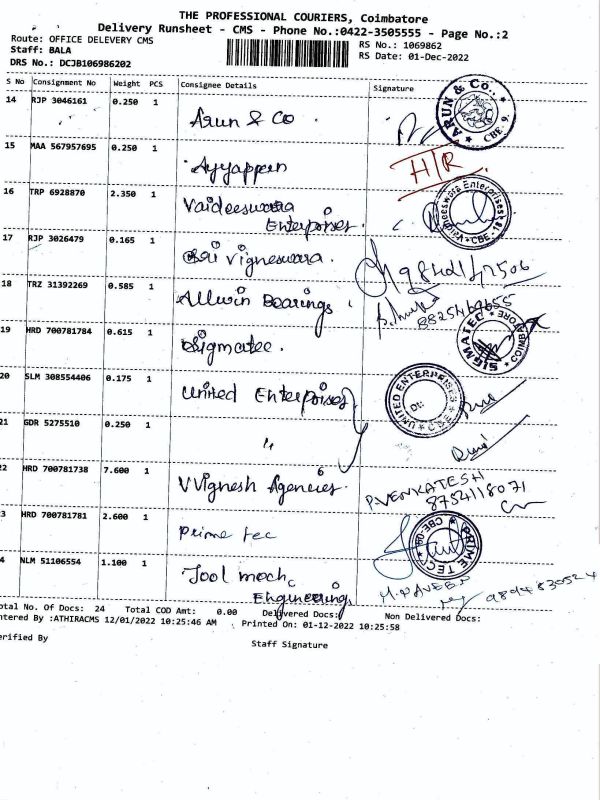 THE PROFESSIONAL COURIERS, Coimbatore
Delivery Runsheet - CMS - Phone No.:0422-3505555 - Page No.:2
Route: OFFICE DELEVERY CMS
RS No.: 1069862
Staff: BALA
RS Date: 01-Dec-2022
DRS No.: DCJB106986202
S No Consignment No Weight PCS Consignee Details Signature
14 RJP 3046161 0.250 1 Arun & Co.
ARUN & Co., CBE. 9.
15 MAA 567957695 0.250 1 Ayyappen H/R
16 TRP 6928870 2.350 1 Vaideeswara
Enterprises.
Enterprises CBE - 18
17 RJP 3026479 0.165 1 Sri Vigneswara.
18 TRZ 31392269 0.585 1 Allwin Bearings
19 HRD 700781784 0.615 1 Sigmatec.
SIGMATEC COIMBATORE
20 SLM 308554406 0.175 1 United Enterprises
UNITED ENTERPRISES CBE
21 GDR 5275510 0.250 1 "
22 HRD 700781738 7.600 1 VVignesh Agencies.
P.VENKATESH
8754118071
3 HRD 700781781 2.600 1 Prime tec
PRIME TEC CBE-09
4 NLM 51106554 1.100 1 Tool mech
Engineering
M.NAVEEN
9894830524
otal No. Of Docs: 24 Total COD Amt: 0.00 Delivered Docs: Non Delivered Docs:
ntered By :ATHIRACMS 12/01/2022 10:25:46 AM Printed On: 01-12-2022 10:25:58
erified By
Staff Signature